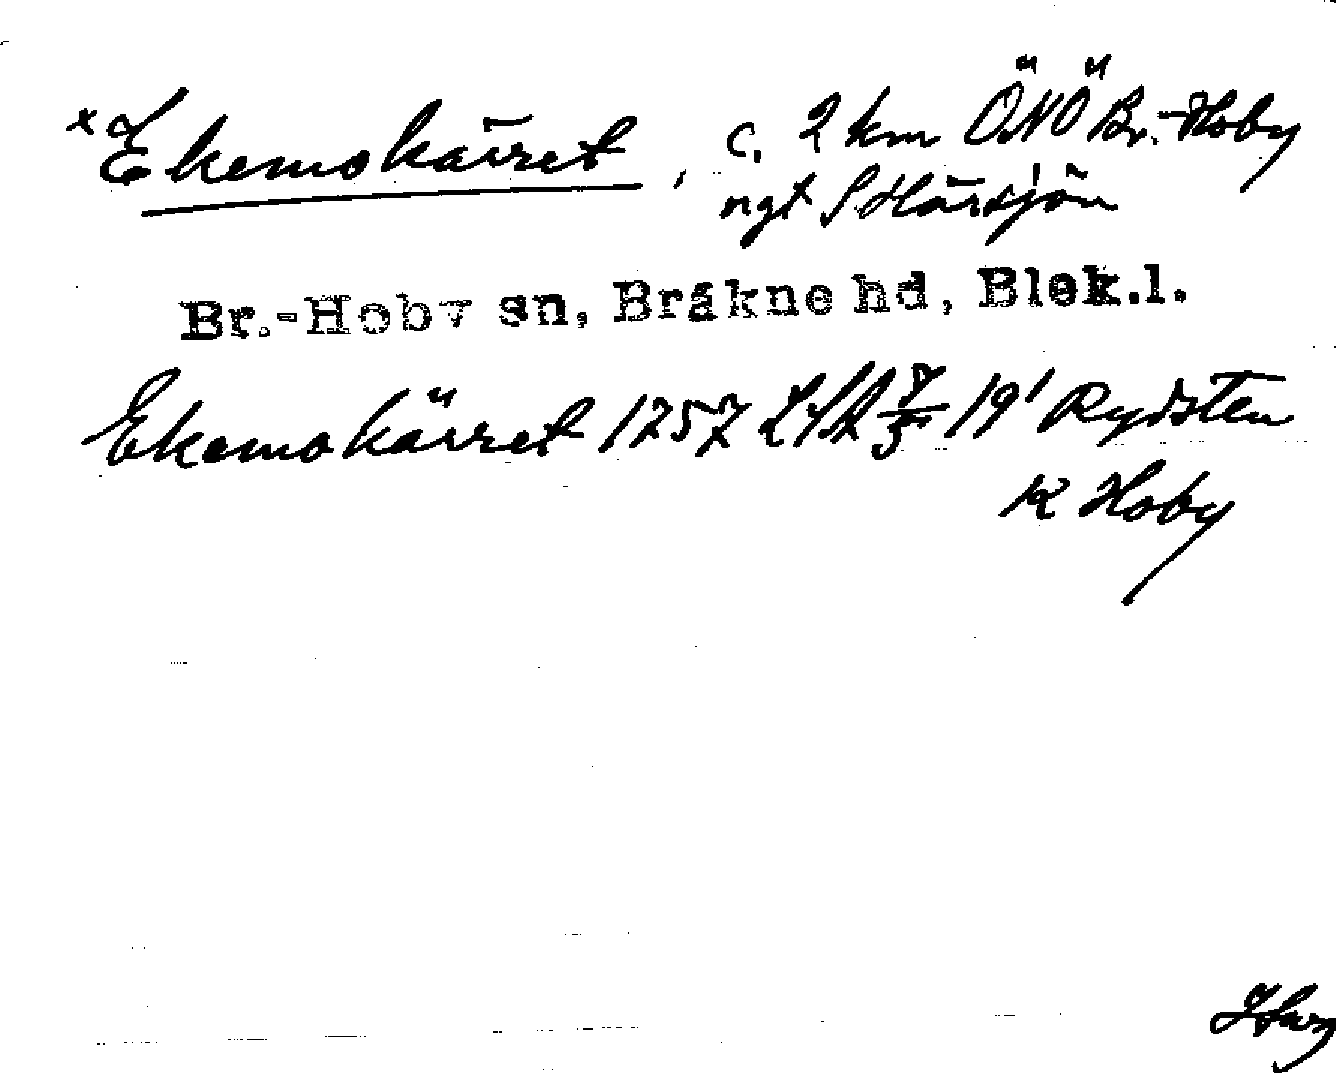 *Ekemokärret, c. 2 km ÖNÖ Br.-Hoby
ngt S Härsjön
Br.-Hoby sn, Bräkne hd, Blek.l.
Ekemokärret 1757 LSA 19' Rydsten
K Hoby